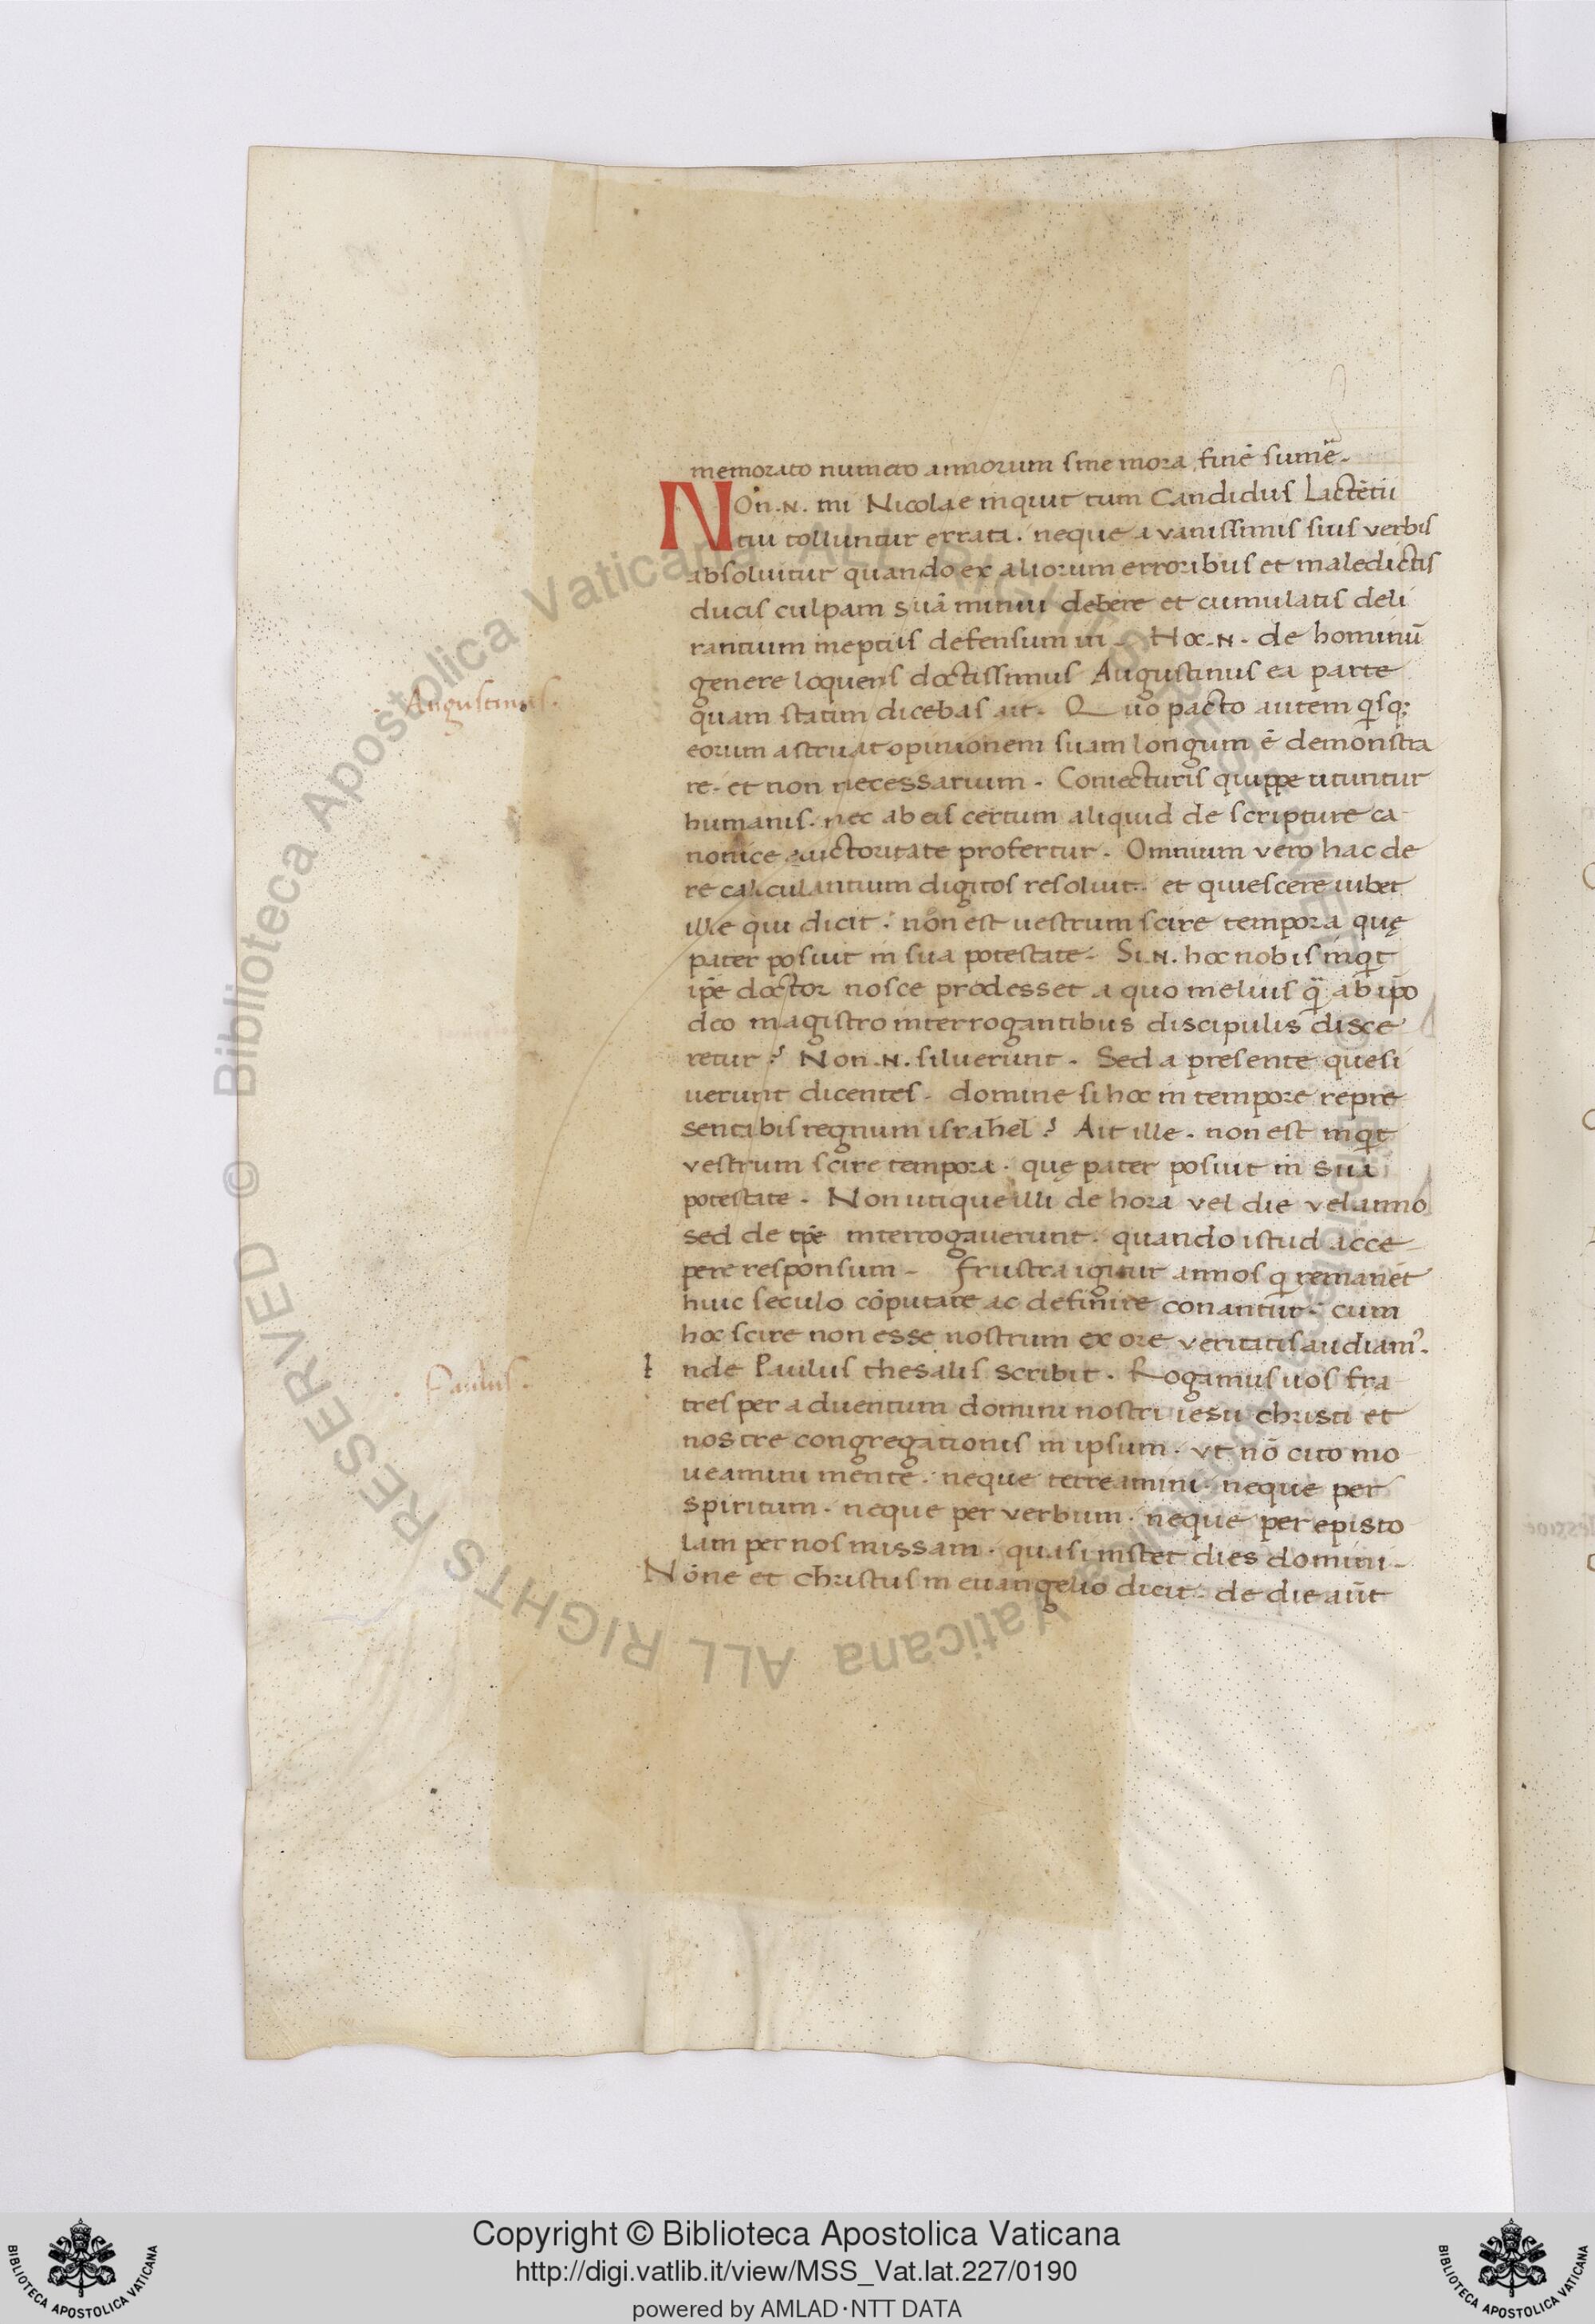 memorato numero annorum sine mora finē sumē.
NOn .N. mi Nicolae inquit tum Candidus Lactētii
tui tolluntur errata. neque a vanissimis suis verbis
absoluitur quando ex aliorum erroribus et maledictis
ducis culpam suā minui debere et cumulatis deli
rantium ineptiis defensum iri. Hoc .N. de hominū
genere loquens doctissimus Augustinus ea parte
Augustinus.
quam statim dicebas ait. Quo pacto autem qisq;
eorum astruat opinionem suam longum ē demonstra
re. et non necessarium. Coniecturis quippe utuntur
humanis. nec ab eis certum aliquid de scripture ca
nonice auctoritate profertur. Omnium vero hac de
re calculantium digitos resoluit. et quiescere iubet
ille qui dicit. non est uestrum scire tempora quę
pater posuit in sua potestate. Si .N. hoc nobis inqit
ip̄e doctor nosce prodesset a quo melius q̄ ab ip̄o
deo magistro interrogantibus discipulis disce
retur? Non .N. siluerunt. Sed a presente quesi
uerunt dicentes. domine si hoc in tempore repre
sentabis regnum israhel? Ait ille. non est inqit
vestrum scire tempora. quę pater posuit in sua
potestate. Non utique illi de hora vel die vel anno
sed de tp̄e interrogauerunt. quando istud acce
pere responsum. frustra igitur annos q remanēt
huic seculo cōputare ac definire conantur. cum
hoc scire non esse nostrum ex ore veritatis audiam᾿.
Inde Paulus thesalis scribit. Rogamus uos fra
Paulus.
tres per aduentum domini nostri iesu christi et
nostre congregationis in ipsum. vt nō cito mo
ueamini mente. neque terreamini. neque per
spiritum. neque per verbum. neque per episto
lam per nos missam. quasi instet dies domini.
Nōne et christus in euangelio dicit. de die aūt
Biblioteca Apostolica Vaticana ALL RIGHTS RESERVED ©
Copyright © Biblioteca Apostolica Vaticana
http://digi.vatlib.it/view/MSS_Vat.lat.227/0190
powered by AMLAD·NTT DATA
BIBLIOTECA APOSTOLICA VATICANA
BIBLIOTECA APOSTOLICA VATICANA